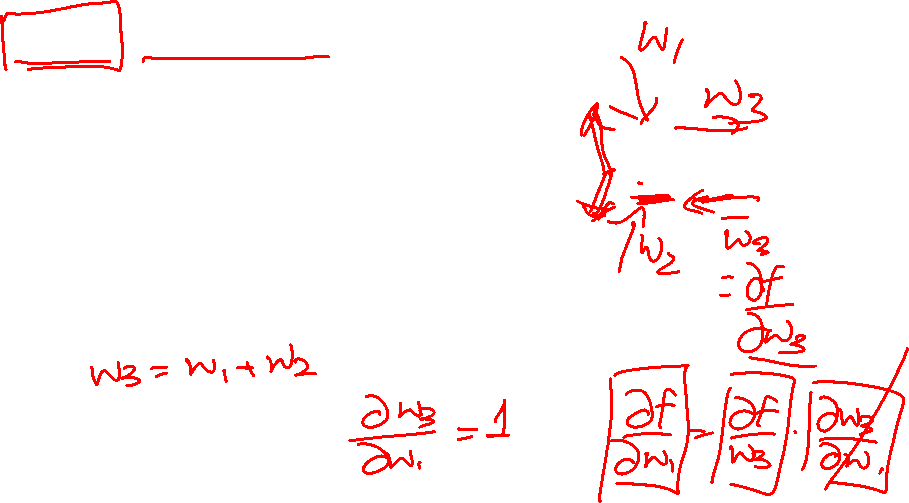 w₁
w₃
w₂
w̄₃
= ∂f/∂w₃
w₃ = w₁ + w₂
∂w₃/∂w₁ = 1
∂f/∂w₁ = ∂f/w₃ · ∂w₃/∂w₁